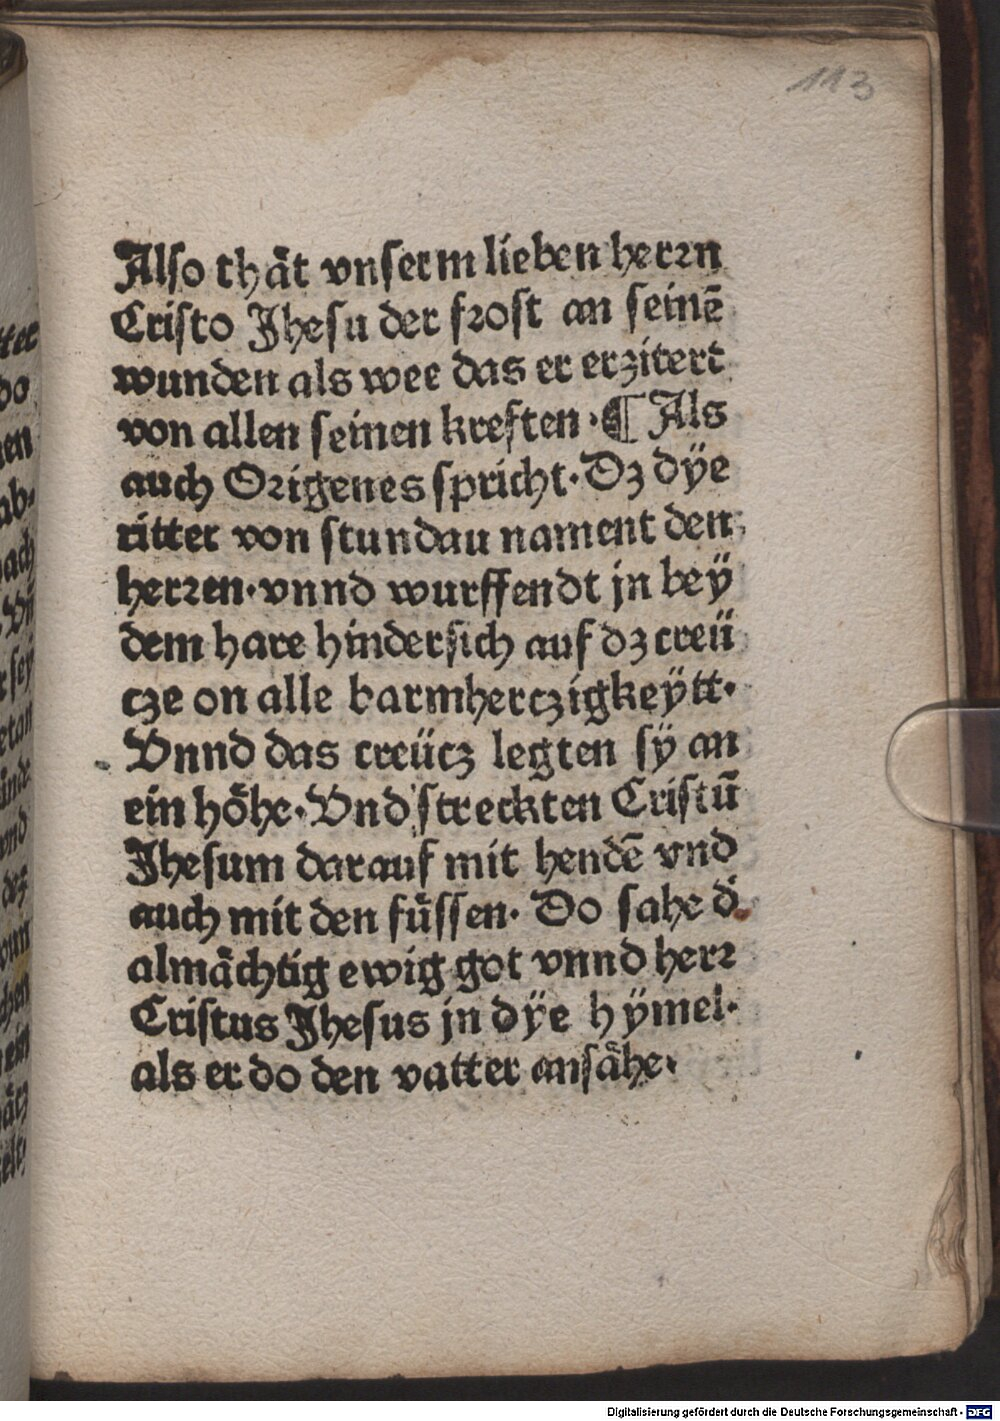 113
Also thät vnserm lieben herrn
Cristo Jhesu der frost an seinē
wunden als wee das er erzitert
von allen seinen kreften · ¶ Als
auch Origenes spricht · Dz dÿe
ritter von stundau nament den
herren · vnnd wurffendt jn beÿ
dem hare hindersich auf dz creü
cze on alle barmherczigkeÿtt ·
Vnnd das creücz legten sÿ an
ein höhe · Vnd streckten Cristū
Jhesum darauf mit hendē vnd
auch mit den füssen · Do sahe d̄
almächtig ewig got vnnd herr
Cristus Jhesus jn dÿe hÿmel ·
als er do den vatter ansähe ·
Digitalisierung gefördert durch die Deutsche Forschungsgemeinschaft - DFG